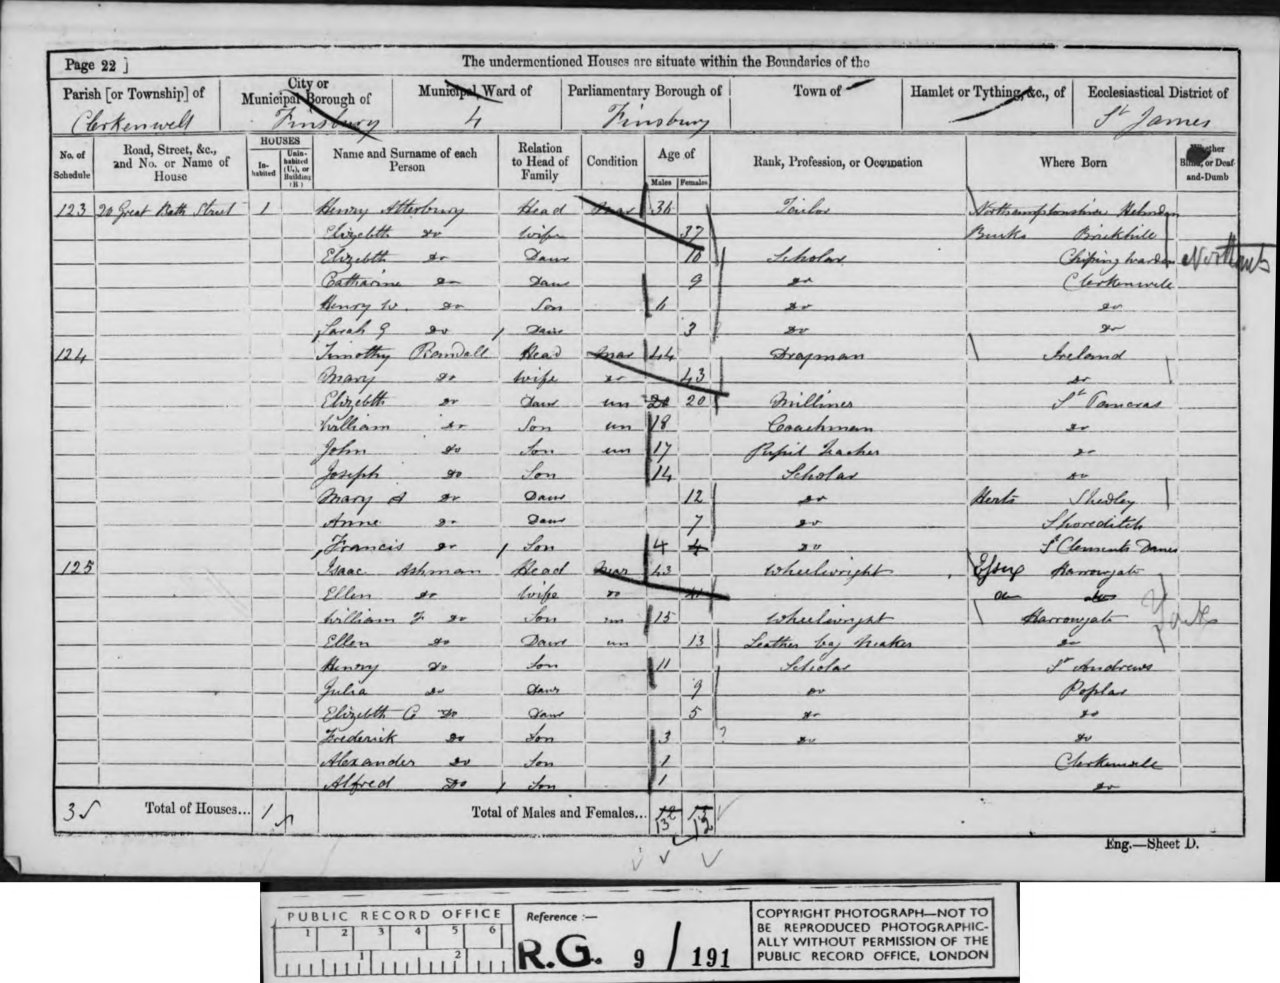 Page 22 ]
The undermentioned Houses are situate within the Boundaries of the
Parish [or Township] of
Clerkenwell
City or
Municipal Borough of
Finsbury
Municipal Ward of
4
Parliamentary Borough of
Finsbury
Town of
Hamlet or Tything, &c., of
Ecclesiastical District of
St James
No. of Schedule
Road, Street, &c., and No. or Name of House
HOUSES
In-habited
Unin-habited (U.), or Building (B.)
Name and Surname of each Person
Relation to Head of Family
Condition
Age of
Males Females
Rank, Profession, or Occupation
Where Born
Whether Blind, or Deaf-and-Dumb
123 20 Great Bath Street 1 Henry Atterbury Head Mar 36 Tailor Northamptonshire
Elizabth Do Wife 37 Bucks Brickhill
Elizabth Do Daur 10 Scholar Chiping Warden Northants
Catharine Do Daur 9 Do Clerkenwell
Henry W. Do Son 4 Do Do
Sarah G Do Daur 3 Do Do
124 Timothy Randall Head Mar 44 Drapman Ireland
Mary Do Wife Do 43 Do
Elizabth Do Daur Un 20 Milliner St Pancras
William Do Son Un 18 Coachman Do
John Do Son Un 17 Pupil Teacher Do
Joseph Do Son 14 Scholar Do
Mary A Do Daur 12 Do Herts
Anne Do Daur 7 Do Shoreditch
Francis Do Son 4 4 Do St Clements Danes
125 Isaac Ashman Head Mar 43 Wheelwright Essex Harrowgate
Ellen Do Wife Do Do Do
William F Do Son Un 15 Wheelwright Harrowgate Yorks
Ellen Do Daur Un 13 Leather bag Maker Do
Henry Do Son 11 Scholar St Andrews
Julia Do Daur 9 Do Poplar
Elizabth C Do Daur 5 Do Do
Frederick Do Son 3 Do Do
Alexander Do Son 1 Clerkenwell
Alfred Do Son 1 Do
3 Total of Houses... 1 Total of Males and Females... 13 12
Eng.—Sheet D.
PUBLIC RECORD OFFICE
1 2 3 4 5 6
1 2
Reference :—
R.G. 9 / 191
COPYRIGHT PHOTOGRAPH—NOT TO
BE REPRODUCED PHOTOGRAPHIC-
ALLY WITHOUT PERMISSION OF THE
PUBLIC RECORD OFFICE, LONDON